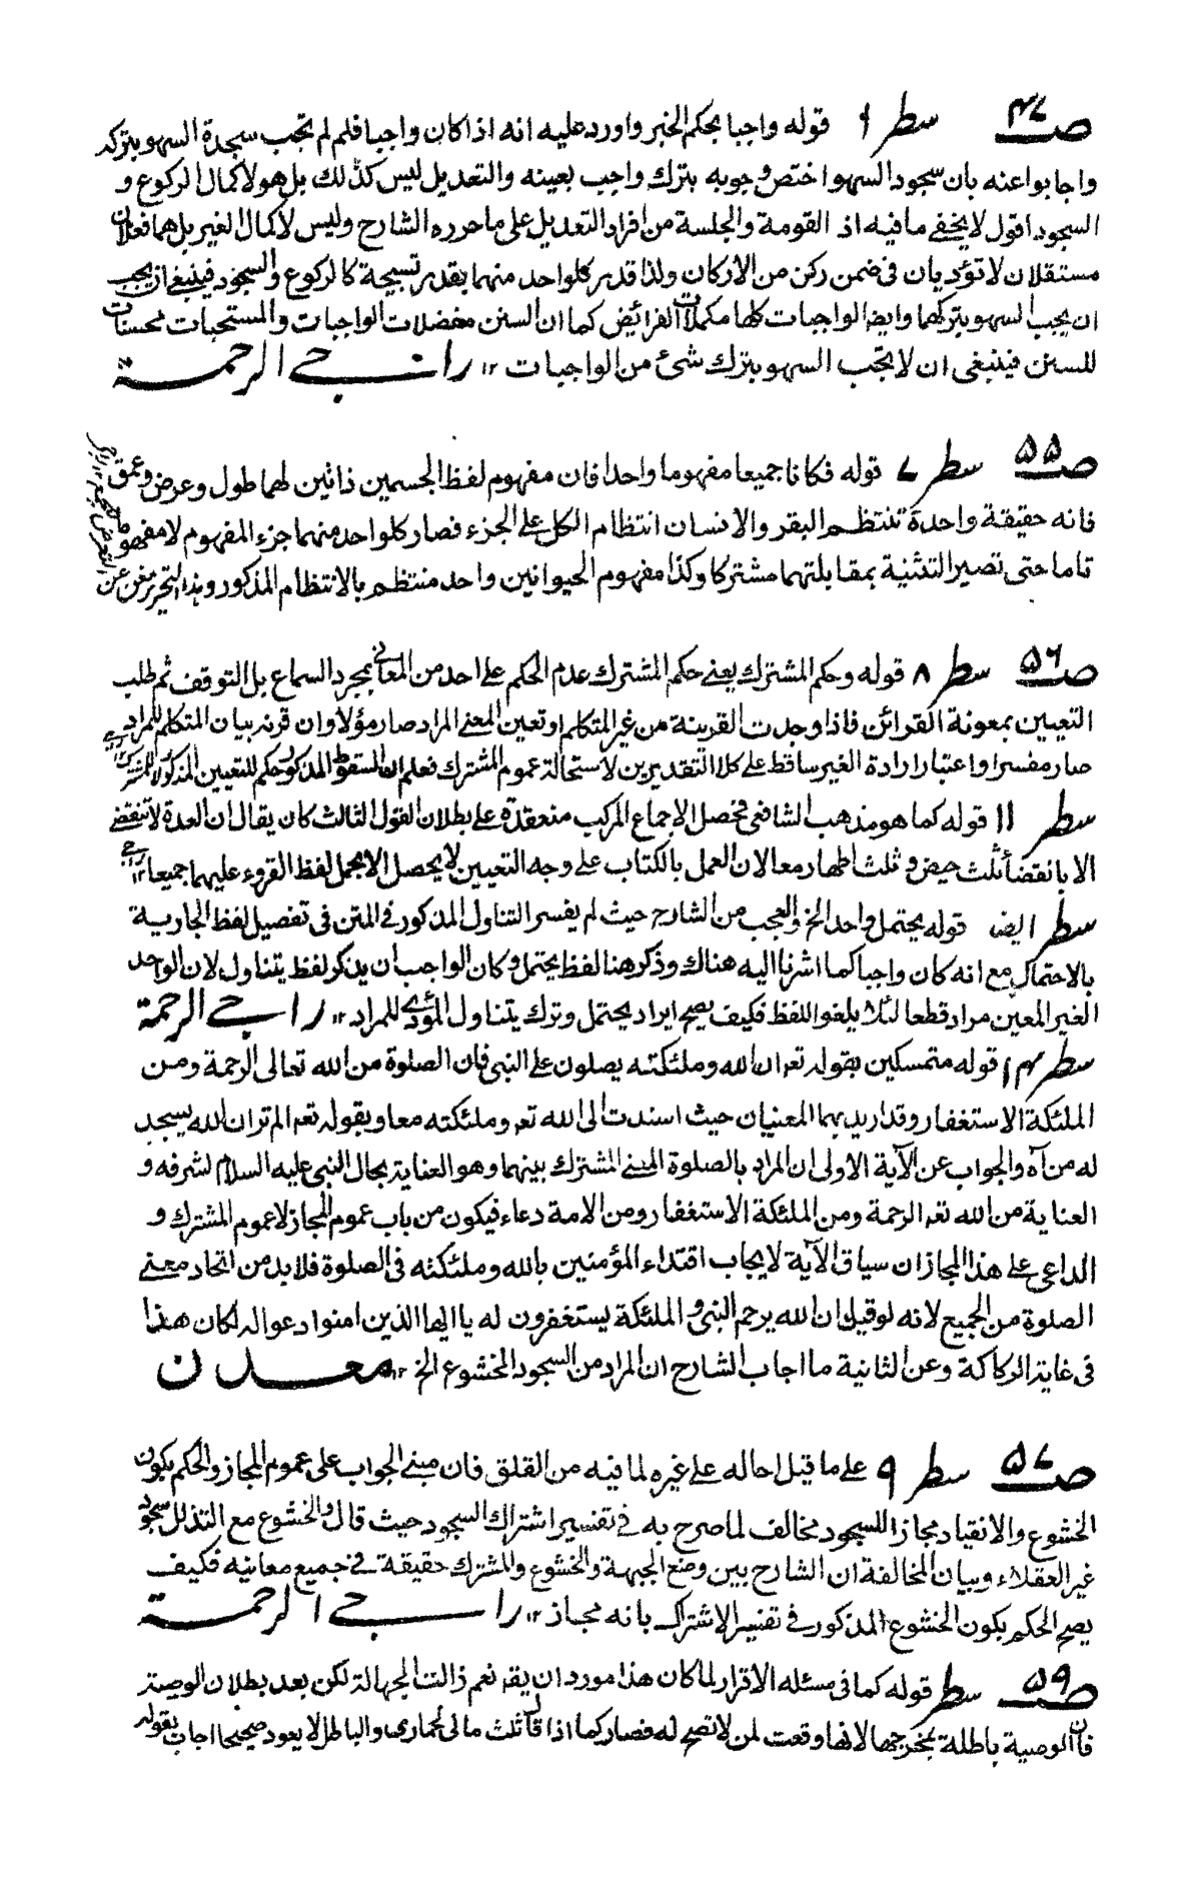 صـ ۴۷ سطر ۹ قوله واجبا بحكم الخبر واورد عليه انه اذا كان واجبا فلم لم تجب سجدة السهو بتركه
واجابوا عنه بان سجود السهو اختص وجوبه بترك واجب بعينه والتعديل ليس كذلك بل هو لاكمال الركوع و
السجود اقول لا يخفى ما فيه اذ القومة والجلسة من افراد التعديل على ما حرره الشارح وليس لاكمال الغير بل هما فعلان
مستقلان لا تؤديان فى ضمن ركن من الاركان ولذا قدر كلواحد منهما بقدر تسبيحة كالركوع والسجود فينبغى ان يجب
ان يجب السهو بتركهما وايضا الواجبات كلها مكملات الفرائض كما ان السنن مفضلات الواجبات والمستحبات محسنات
للسنن فينبغى ان لا تجب السهو بترك شئ من الواجبات ١٢ راجى الرحمة
صـ ۵۵ سطر ۷ قوله فكانا جميعا مفهوما واحدا فان مفهوم لفظ الجسمين ذاتين لهما طول وعرض وعمق
فانه حقيقة واحدة تنتظم البقر والانسان انتظام الكل على الجزء فصار كلواحد منهما جزء المفهوم لا مفهوما
تاما حتى تصير التثنية بمقابلتهما مشتركا وكذا مفهوم الحيوانين واحد منتظم بالانتظام المذكور وهذا التحرير مغن عن
صـ ۵۶ سطر ۸ قوله وحكم المشترك يعنى حكم المشترك عدم الحكم على احد من المعانى بمجرد السماع بل التوقف ثم طلب
التعيين بمعونة القرائن فاذا وجدت القرينة من غير المتكلم او تعين المعنى المراد صار مؤلا وان قرنه بيان المتكلم للمراد
صار مفسرا واعتبار ارادة الغير ساقط على كلا التقديرين لاستحالة عموم المشترك فعلم ان السقوط المذكور حكم للتعيين المذكور لا للمشترك
سطر ۱۱ قوله كما هو مذهب الشافعى فحصل الاجماع المركب منعقدة على بطلان القول الثالث كان يقال ان العدة لا تنقضى
الا بانقضاء ثلث حيض وثلث اطهار معا لان العمل بالكتاب على وجه التعيين لا يحصل الا بحمل لفظ القروء عليهما جميعا ١٢
سطر ايضا قوله يحتمل واحد الخ والعجب من الشارح حيث لم يفسر التناول المذكور فى المتن فى تفصيل لفظ الجارية
بالاحتمال مع انه كان واجبا كما اشرنا اليه هناك وذكر هنا لفظ يحتمل وكان الواجب ان يذكر لفظ يتناول لان الواحد
الغير المعين مراد قطعا لئلا يلغو اللفظ فكيف يصح ايراد يحتمل وترك يتناول المؤدى للمراد ١٢ راجى الرحمة
سطر ۱۴ قوله متمسكين بقوله تعه ان الله وملئكته يصلون على النبى فان الصلوة من الله تعالى الرحمة ومن
الملئكة الاستغفار وقد اريد بهما المعنيان حيث اسندت الى الله تعه وملئكته معا وبقوله تعه الم تر ان الله يسجد
له من آه والجواب عن الآية الاولى ان المراد بالصلوة المعنى المشترك بينهما وهو العناية بحال النبى عليه السلام لشرفه و
العناية من الله تعه الرحمة ومن الملئكة الاستغفار ومن الامة دعاء فيكون من باب عموم المجاز لا عموم المشترك و
الداعى على هذا المجاز ان سياق الآية لايجاب اقتداء المؤمنين بالله وملئكته فى الصلوة فلا بد من اتحاد معنى
الصلوة من الجميع لانه لو قيل ان الله يرحم النبى و الملئكة يستغفرون له يا ايها الذين امنوا دعوا له لكان هذا
فى غاية الركاكة وعن الثانية ما اجاب الشارح ان المراد من السجود الخشوع الخ ١٢ معدن
صـ ۵۷ سطر ۹ على ما قيل احاله على غيره لما فيه من القلق فان مبنى الجواب على عموم المجاز والحكم بكون
الخشوع والانقياد مجازا للسجود مخالف لما صرح به فى تفسير اشتراك السجود حيث قال والخشوع مع التذلل سجود
غير العقلاء وبيان المخالفة ان الشارح بين وضع الجبهة والخشوع والمشترك حقيقة فى جميع معانيه فكيف
يصح الحكم بكون الخشوع المذكور فى تفسير الاشتراك بانه مجاز ١٢ راجى الرحمة
صـ ۵۹ سطر قوله كما فى مسئله الاقرار لما كان هذا مورد ان يقه نعم زالت الجهالة لكن بعد بطلان الوصية
فان الوصية باطلة بمخرجها لانها وقعت لمن لا تصح له فصار كما اذا قال ثلث مالى لحمارى والباطل لا يعود صحيحا اجاب بقوله